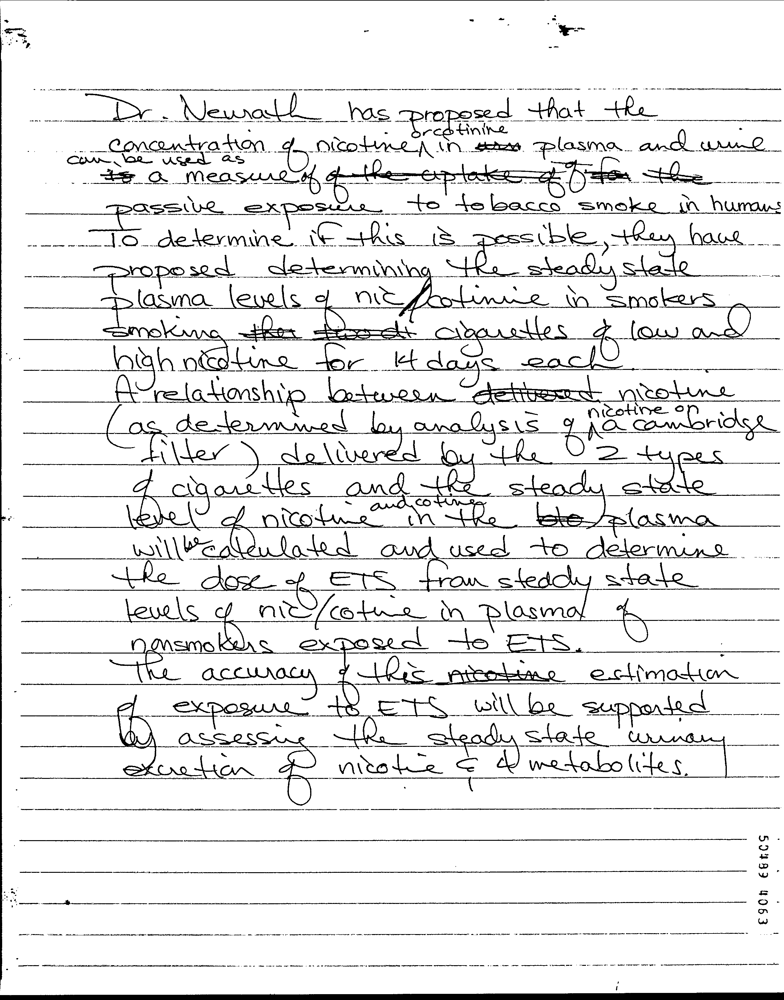 Dr. Neurath has proposed that the
or cotinine
concentration of nicotine in plasma and urine
can be used as
is a measure of of the uptake of of for the
passive exposure to tobacco smoke in humans
To determine if this is possible, they have
proposed determining the steady state
plasma levels of nic/cotinine in smokers
smoking cigarettes of low and
high nicotine for 14 days each.
A relationship between delivered nicotine
nicotine on
(as determined by analysis of a cambridge
filter) delivered by the 2 types
of cigarettes and the steady state
and cotinine
level of nicotine in the blo plasma
will be calculated and used to determine
the dose of ETS from steddy state
levels of nic/cotine in plasma of
nonsmokers exposed to ETS.
The accuracy of this nicotine estimation
of exposure to ETS will be supported
by assessing the steady state urinary
excretion of nicotine & 4 metabolites.
50489 4063